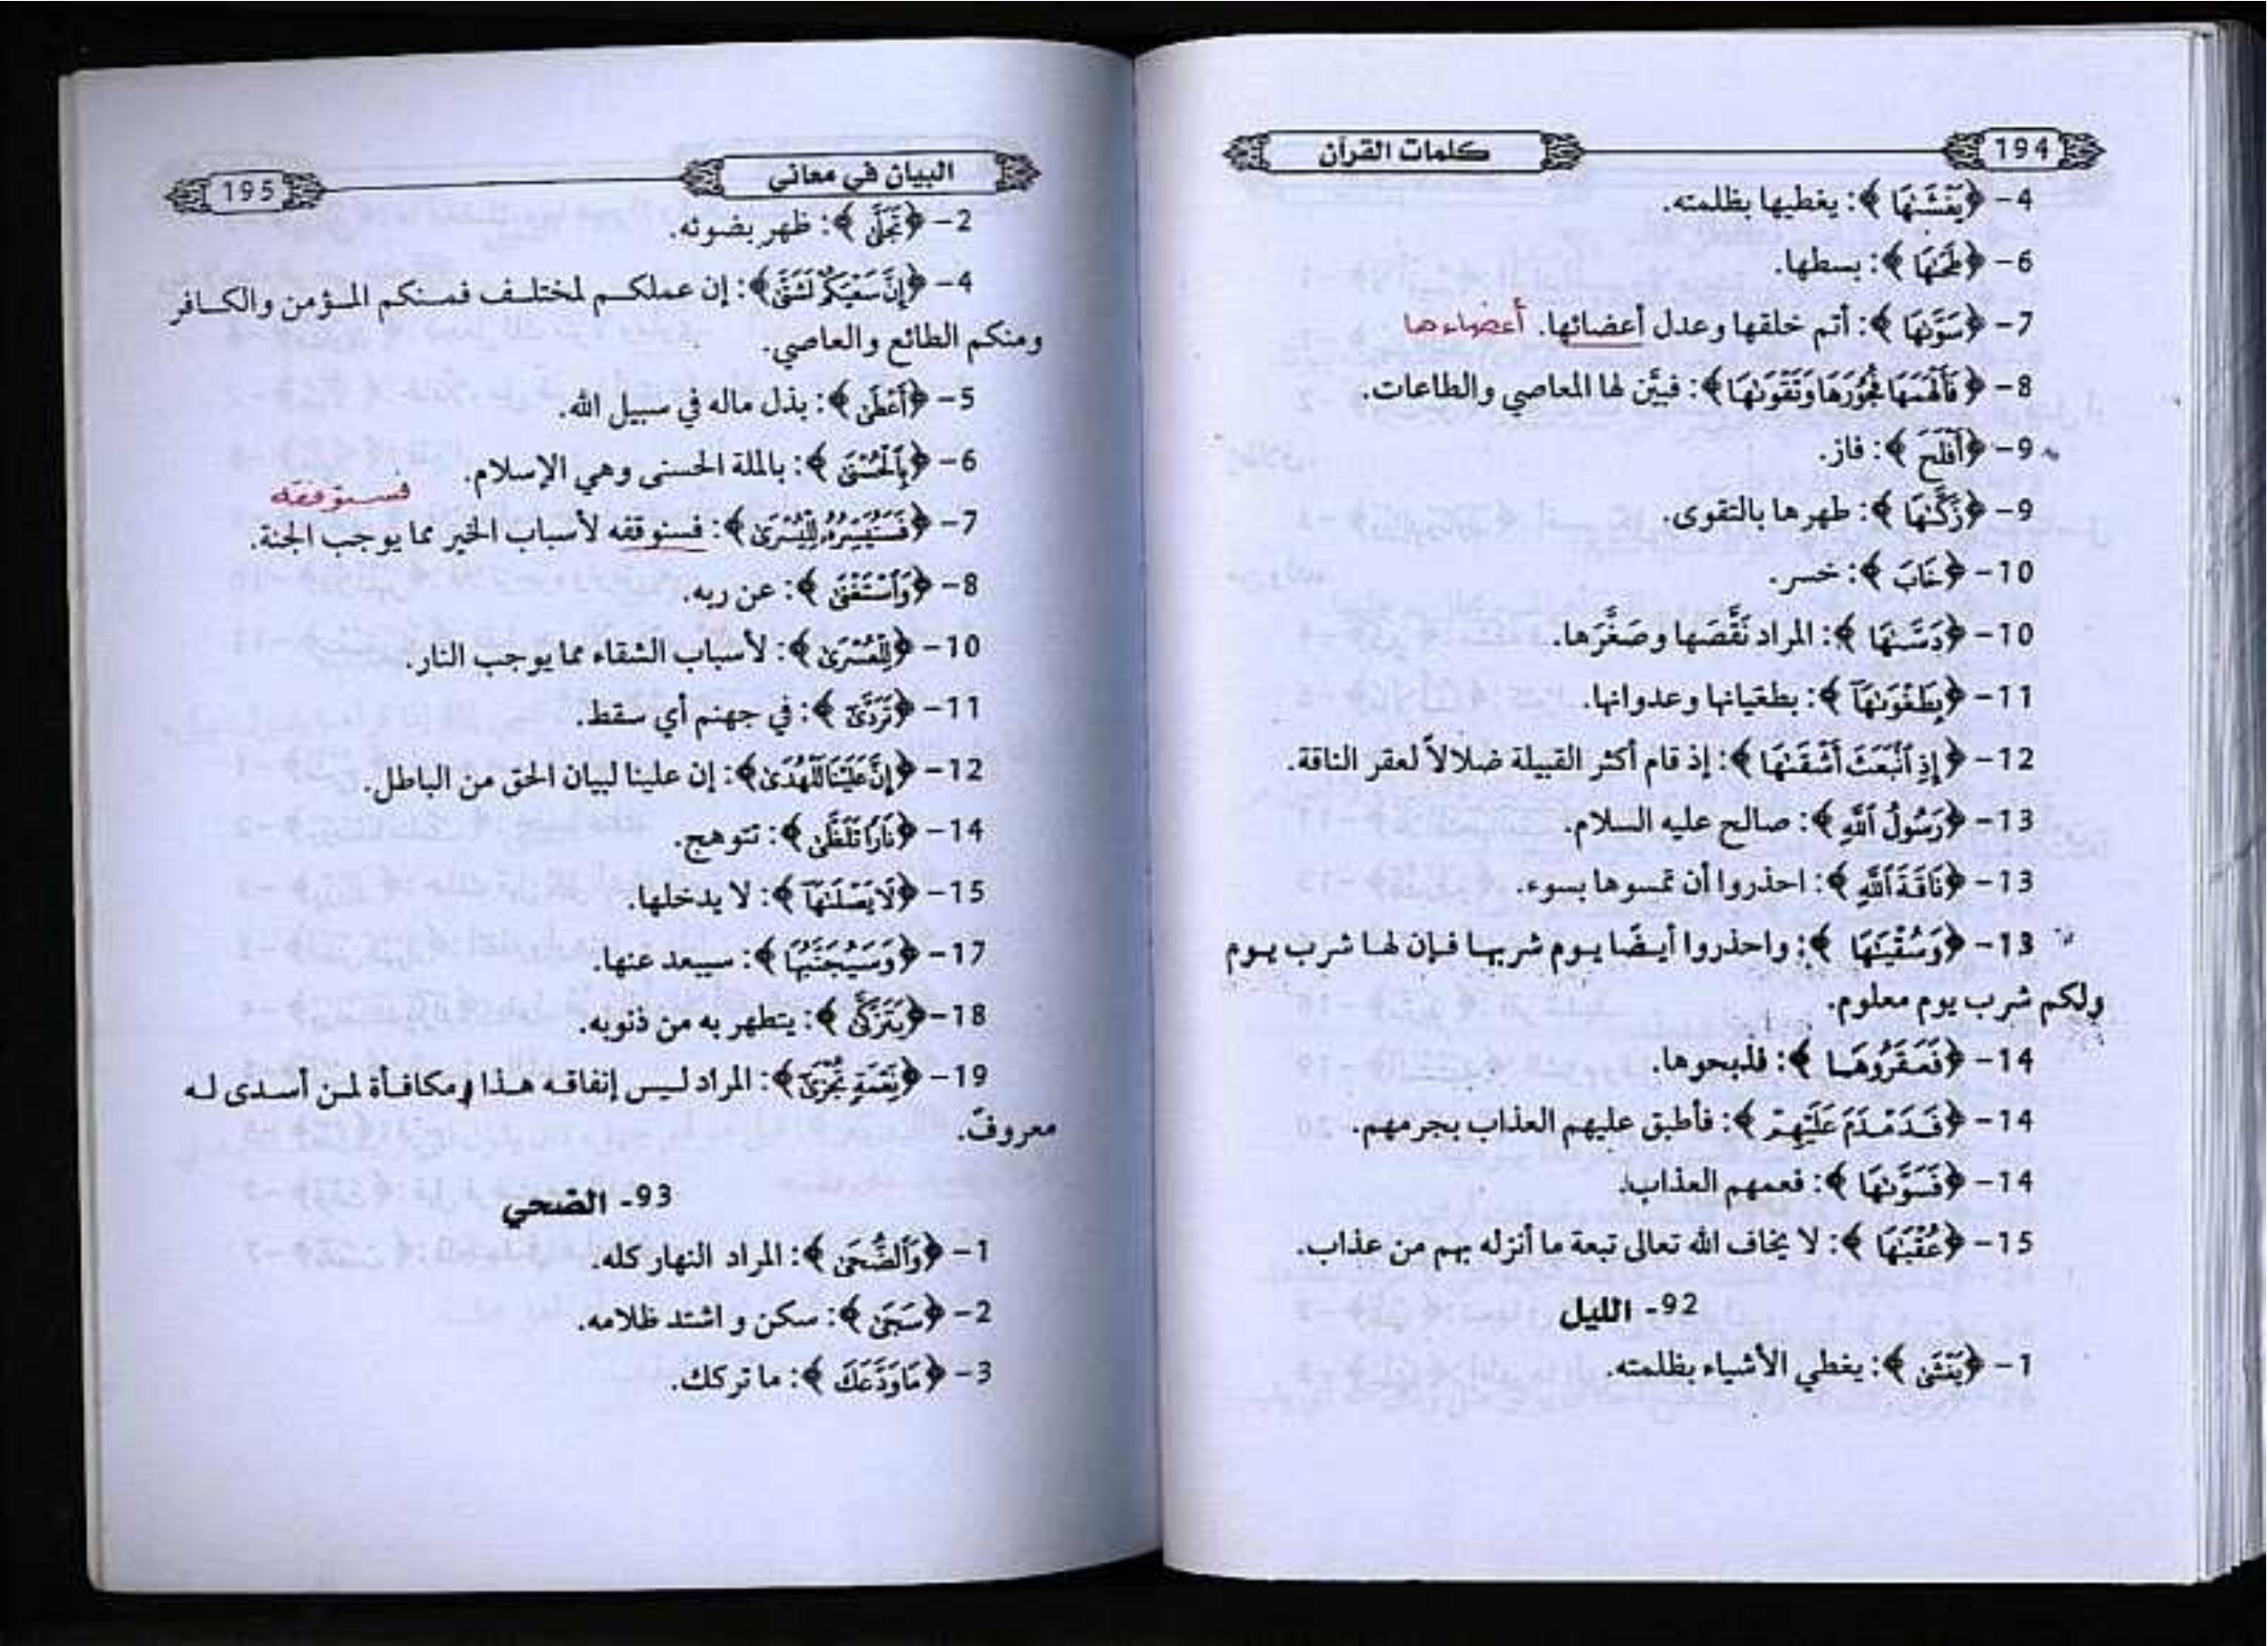 194 كلمات القرآن
4- ﴿يَغْشَىٰهَا﴾: يغطيها بظلمته.
6- ﴿طَحَىٰهَا﴾: بسطها.
7- ﴿سَوَّىٰهَا﴾: أتم خلقها وعدل أعضائها. أعضاءها
8- ﴿فَأَلْهَمَهَا فُجُورَهَا وَتَقْوَىٰهَا﴾: فبيَّن لها المعاصي والطاعات.
9- ﴿أَفْلَحَ﴾: فاز.
9- ﴿زَكَّىٰهَا﴾: طهرها بالتقوى.
10- ﴿خَابَ﴾: خسر.
10- ﴿دَسَّىٰهَا﴾: المراد نَقَّصَها وصَغَّرَها.
11- ﴿بِطَغْوَىٰهَآ﴾: بطغيانها وعدوانها.
12- ﴿إِذِ ٱنۢبَعَثَ أَشْقَىٰهَا﴾: إذ قام أكثر القبيلة ضلالاً لعقر الناقة.
13- ﴿رَسُولُ ٱللَّهِ﴾: صالح عليه السلام.
13- ﴿نَاقَةَ ٱللَّهِ﴾: احذروا أن تمسوها بسوء.
13- ﴿وَسُقْيَـٰهَا﴾: واحذروا أيضًا يوم شربها فإن لها شرب يوم
ولكم شرب يوم معلوم.
14- ﴿فَعَقَرُوهَا﴾: فذبحوها.
14- ﴿فَدَمْدَمَ عَلَيْهِمْ﴾: فأطبق عليهم العذاب بجرمهم.
14- ﴿فَسَوَّىٰهَا﴾: فعمهم العذاب.
15- ﴿عُقْبَـٰهَا﴾: لا يخاف الله تعالى تبعة ما أنزله بهم من عذاب.
92- الليل
1- ﴿يَغْشَىٰ﴾: يغطي الأشياء بظلمته.
البيان في معاني 195
2- ﴿تَجَلَّىٰ﴾: ظهر بضوئه.
4- ﴿إِنَّ سَعْيَكُمْ لَشَتَّىٰ﴾: إن عملكم لمختلف فمنكم المؤمن والكافر
ومنكم الطائع والعاصي.
5- ﴿أَعْطَىٰ﴾: بذل ماله في سبيل الله.
6- ﴿بِٱلْحُسْنَىٰ﴾: بالملة الحسنى وهي الإسلام.
فسنوفقه
7- ﴿فَسَنُيَسِّرُهُۥ لِلْيُسْرَىٰ﴾: فسنوقفه لأسباب الخير مما يوجب الجنة.
8- ﴿وَٱسْتَغْنَىٰ﴾: عن ربه.
10- ﴿لِلْعُسْرَىٰ﴾: لأسباب الشقاء مما يوجب النار.
11- ﴿تَرَدَّىٰٓ﴾: في جهنم أي سقط.
12- ﴿إِنَّ عَلَيْنَا لَلْهُدَىٰ﴾: إن علينا لبيان الحق من الباطل.
14- ﴿نَارًا تَلَظَّىٰ﴾: تتوهج.
15- ﴿لَا يَصْلَىٰهَآ﴾: لا يدخلها.
17- ﴿وَسَيُجَنَّبُهَا﴾: سيبعد عنها.
18- ﴿يَتَزَكَّىٰ﴾: يتطهر به من ذنوبه.
19- ﴿نِّعْمَةٍ تُجْزَىٰٓ﴾: المراد ليس إنفاقه هذا ومكافأة لمن أسدى له
معروفً.
93- الضحي
1- ﴿وَٱلضُّحَىٰ﴾: المراد النهار كله.
2- ﴿سَجَىٰ﴾: سكن و اشتد ظلامه.
3- ﴿مَا وَدَّعَكَ﴾: ما تركك.